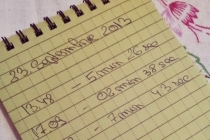 23. September 2013
13.48 - 5 min 26 sec
- 08 min 38 sec
17.09 - 7 min 43 sec